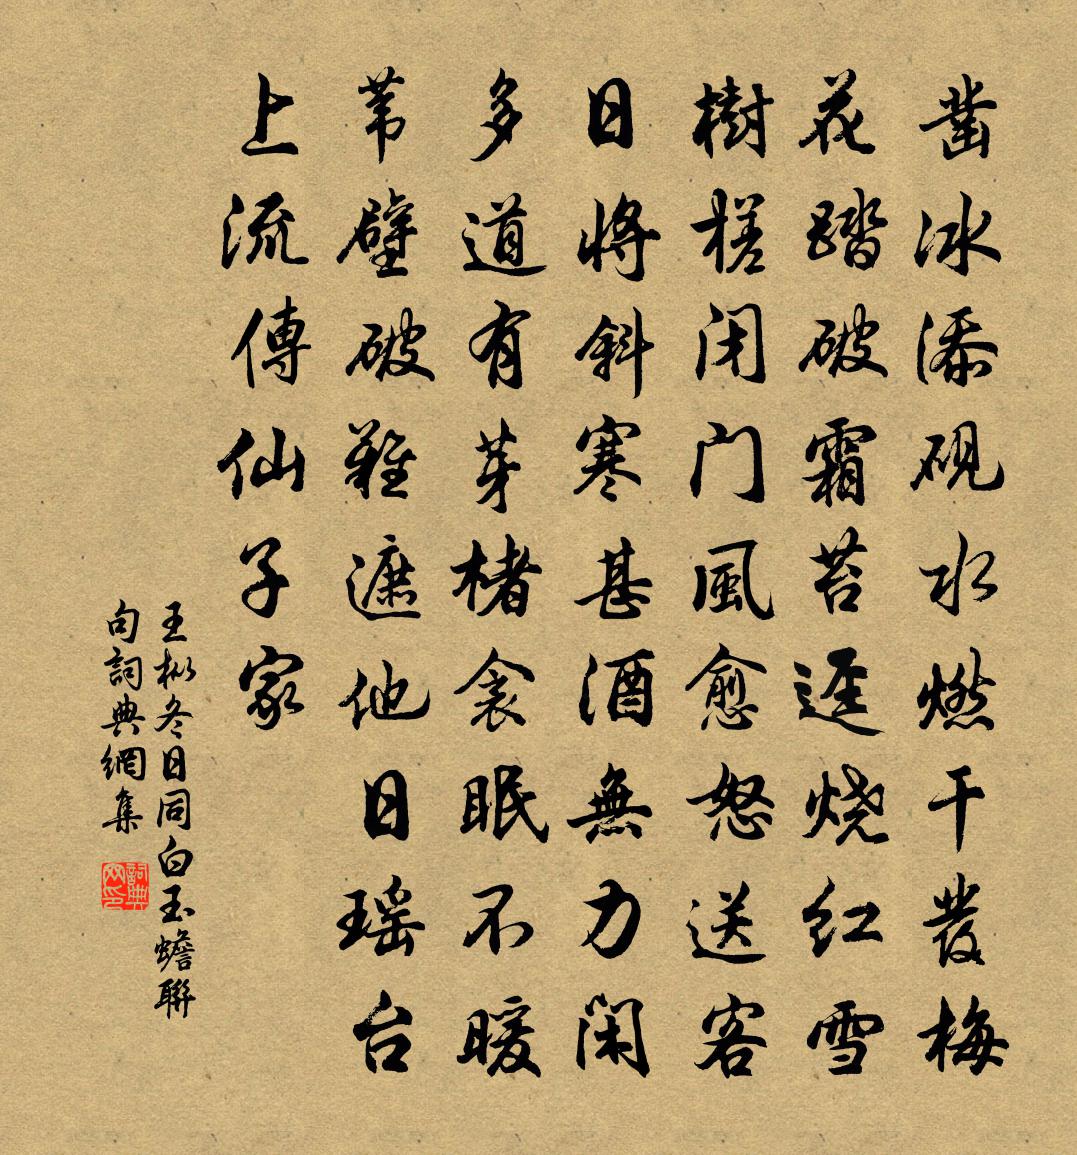 凿冰添砚水燃干發梅
花踏破霜苔逕烧红雪
樹槎闭门風愈怒送客
日將斜寒甚酒無力闲
多道有芽楮衾眠不暖
苇壁破難遮他日瑶台
上流傳仙子家
王枞冬日同白玉蟾聯
句詞典網集
詞典网印